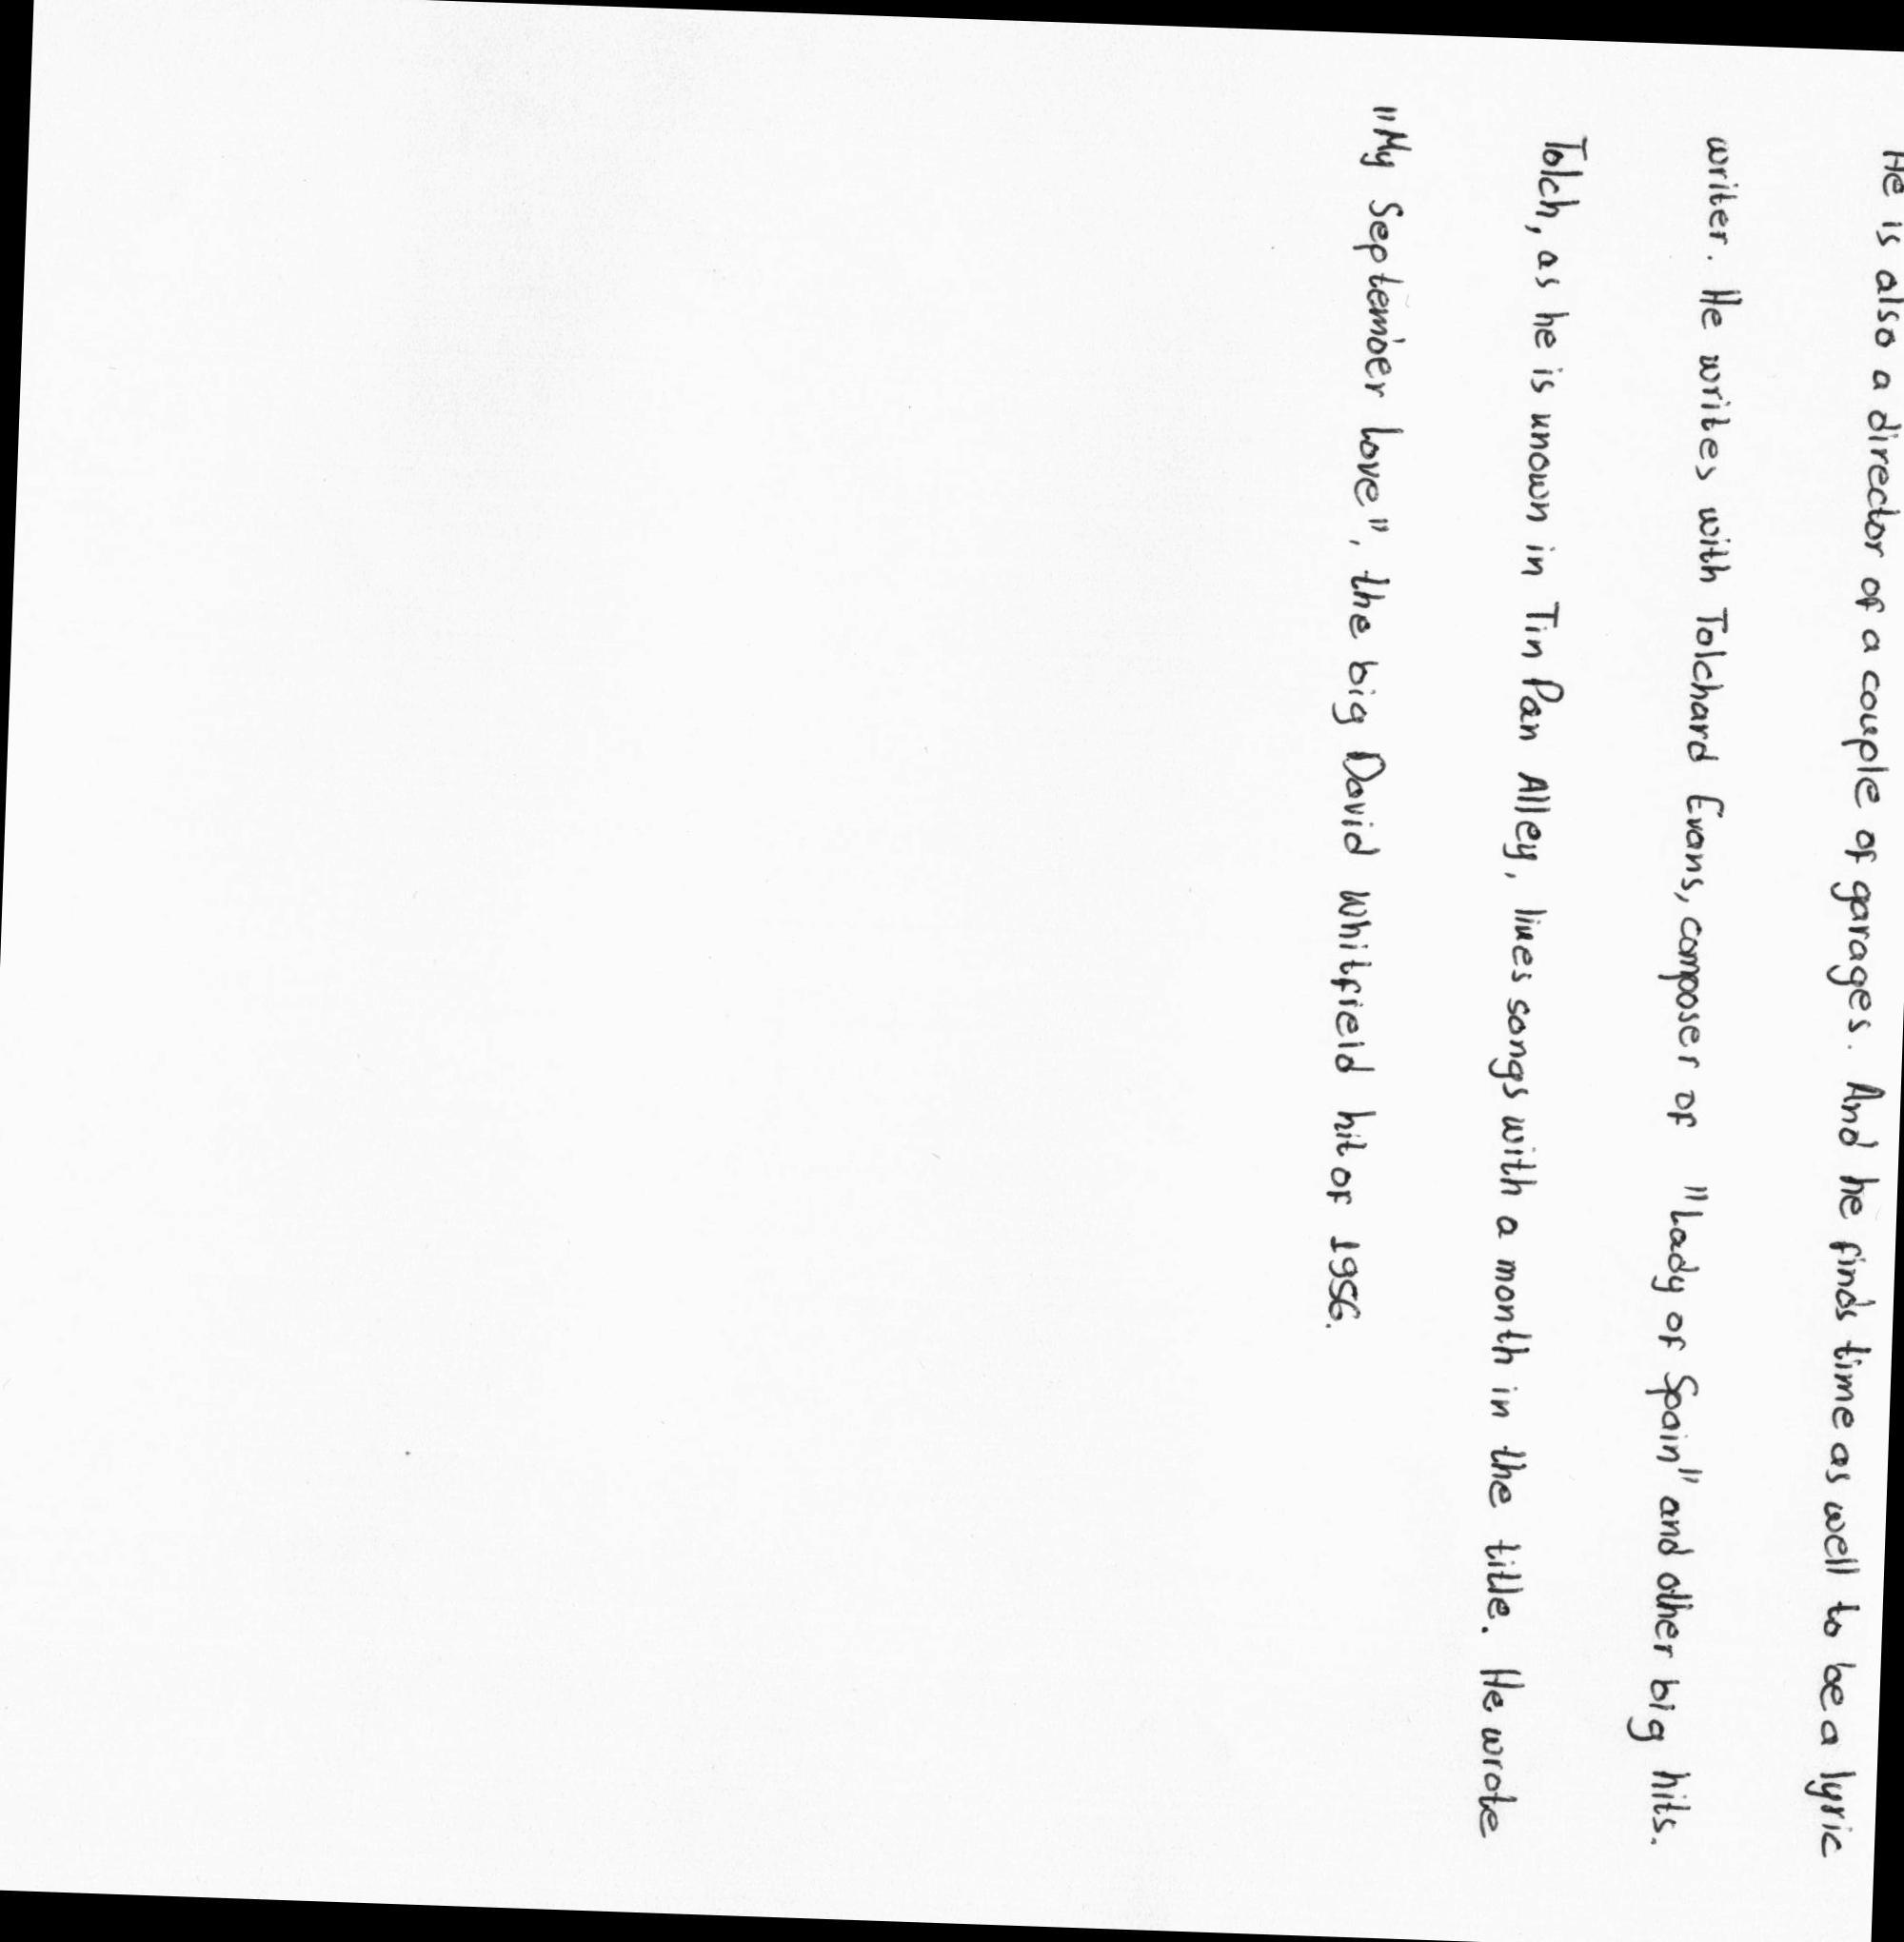 He is also a director of a couple of garages. And he finds time as well to be a lyric
writer. He writes with Tolchard Evans, composer of "Lady of Spain" and other big hits.
Tolch, as he is unown in Tin Pan Alley, liues songs with a month in the title. He wrote
"My September Love", the big David Whitfield hit of 1956.